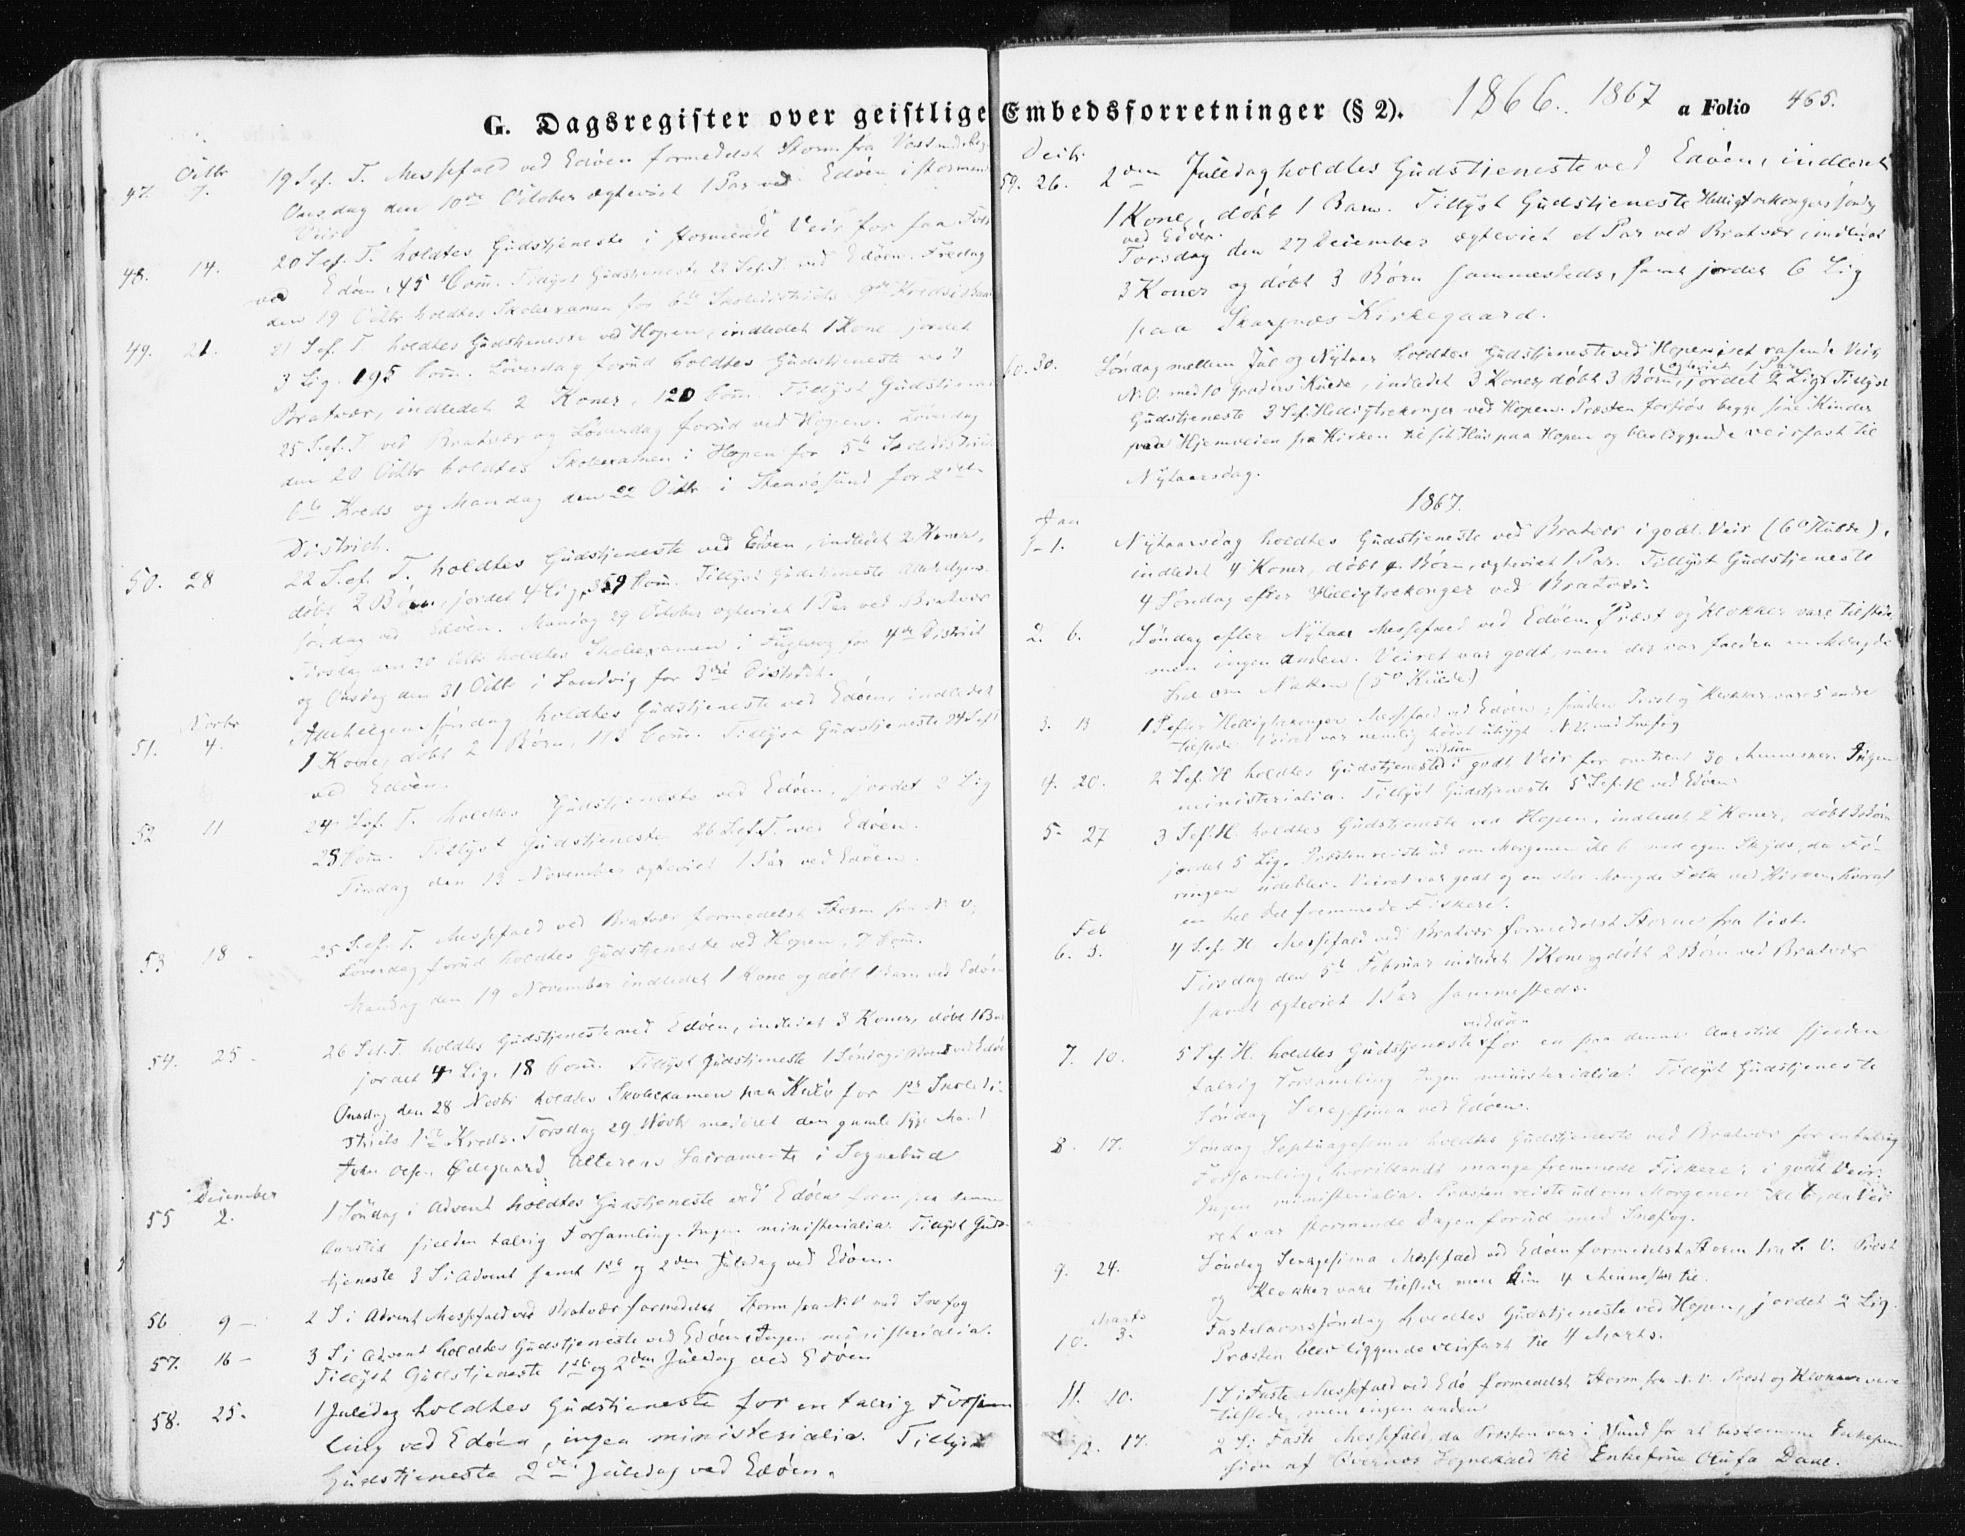 G. Dagsregister over geistlige Embedsforretninger (§ 2). 1866. 1867 a Folio 465.
Octbr
47. 7. 19 S. ef. T. Messefald ved Edøen formedelst Storm fra Vest med Regn
Onsdag den 10de October egteviet 1 Par ved Edøen i stormende
Veir
48. 14. 20 S. ef. T. holdtes Gudstjeneste i stormende Veir for faa Folk
ved Edøen, 45 Com. Tillyst Gudstjeneste 22 S. ef. T. ved Edøen. Fredag
den 19 Octbr holdtes Skolexamen for 6te Skoledistricts
49. 21. 21 S. ef. T. holdtes Gudstjeneste ved Hopen, indledet 1 Kone, jordet
3 Lig. 195 Com. Løverdag forud holdtes Gudstjeneste ved
Bratvær, indledet 2 Koner, 120 Com. Tillyst Gudstjeneste
25 S. ef. T. ved Bratvær og Løverdag forud ved Hopen. Løverdag
den 20 Octbr holdtes Skolexamen i Hopen for 5te Skoledistricts
6te Kreds og Mandag den 22 Octbr i for 2det
District.
50. 28 22 S. ef. T. holdtes Gudstjeneste ved Edøen, indledet 2 Koner,
døbt 2 Børn, jordet 4 Lig, 359 Com. Tillyst Gudstjeneste Allehelgens-
søndag ved Edøen. Mandag 29 October egteviet 1 Par ved Bratvær
Tirsdag den 30 Octbr holdtes Skolexamen i Fuglevog for 4de District
og Onsdag den 31 Octbr i Sandvig for 3die District.
Novbr
51. 4. Allehelgenssøndag holdtes Gudstjeneste ved Edøen, indledet
1 Kone, døbt 2 Børn, 113 Com. Tillyst Gudstjeneste 24 S. ef. T.
ved Edøen.
52 11 24 S. ef. T. holdtes Gudstjeneste ved Edøen, jordet 2 Lig
25 Com. Tillyst Gudstjeneste 26 S. ef. T. ved Edøen.
Tirsdag den 13 November egteviet 1 Par ved Edøen.
53 18. 25 S. ef. T. Messefald ved Bratvær formedelst Storm fra N. V.
Løverdag forud holdtes Gudstjeneste ved Hopen, 7 Com.
Mandag den 19 November indledet 1 Kone og døbt 1 Barn ved Edøen
54. 25. 26 S. ef. T. holdtes Gudstjeneste ved Edøen, indledet 3 Koner, døbt 1 Barn
jordet 4 Lig, 18 Com. Tillyst Gudstjeneste 1 Søndag i Advent ved Edøen
Onsdag den 28 Novbr holdtes Skolexamen paa for 1ste Skoledi-
stricts 1ste Kreds. Torsdag 29 Novbr meddelt den gamle syge Mand
John Olsen Ødegaard, Alterens Sacramente i Sognebud
December
55 2. 1 Søndag i Advent holdtes Gudstjeneste ved Edøen for en paa denne
Aarstid sjelden talrig Forsamling. Ingen ministerialia. Tillyst Guds-
tjeneste 3 S. i Advent samt 1ste og 2den Juledag ved Edøen.
56 9 – 2 S. i Advent Messefald ved Bratvær formedelst Storm fra N. V. med Snefog
57. 16 – 3 S. i Advent holdtes Gudstjeneste ved Edøen. Ingen ministerialia.
Tillyst Gudstjeneste 1ste og 2den Juledag ved Edøen.
58. 25. 1 Juledag holdtes Gudstjeneste for en talrig Forsam
ling ved Edøen, ingen ministerialia. Tillyst
Gudstjeneste 2den Juledag ved Edøen.
Decbr
59. 26. 2den Juledag holdtes Gudstjeneste ved Edøen, indledet
1 Kone, døbt 1 Barn. Tillyst Gudstjeneste Helligtrekongers søndag
ved Edøen.
Torsdag den 27 December egteviet et Par ved Bratvær, indledet
3 Koner og døbt 3 Børn sammesteds, samt jordet 6 Lig
paa Skarpnæs Kirkegaard.
60. 30. Søndag mellem Jul og Nytaar holdtes Gudstjeneste ved Hopen i et rasende Veir
N. O. med 10 Graders Kulde, indledet 3 Koner, døbt 3 Børn, egteviet 1 Par, jordet 2 Lig. Tillyst
Gudstjeneste 3 S. ef. Helligtrekonger ved Hopen. Præsten forfrøs begge sine Kinder
paa Hjemveien fra Kirken til sit Huus paa Hopen og blev liggende veirfast til
Nytaarsdag.
1867.
Jan
1. 1. Nytaarsdag holdtes Gudstjeneste ved Bratvær i godt Veir (6° Kulde),
indledet 4 Koner, døbt 4 Børn, egteviet 1 Par. Tillyst Gudstjeneste
4 Søndag efter Helligtrekonger ved Bratvær.
2. 6. Søndag efter Nytaar Messefald ved Edøen. Præst og Klokker vare tilstede,
men ingen anden. Veiret var godt, men der var falden en Mængde
Sne om Natten (5° Kulde)
3. 13 1 S. efter Helligtrekonger Messefald ved Edøen, foruden Præst og Klokker vare 5 andre
tilstede. Veiret var nemlig høist uhygt N. O. med Snefog
4. 20. 2 S. ef. H. holdtes Gudstjeneste ved Edøen i godt Veir for omtrent 30 Mennesker. Ingen
ministerialia. Tillyst Gudstjeneste 5 S. ef. H. ved Edøen.
5. 27 3 S. ef. H. holdtes Gudstjeneste ved Hopen, indledet 2 Koner, døbt 3 Børn
jordet 5 Lig. Præsten reiste ud om Morgenen Kl 6 med egen Skyds, da Fø-
ringen udeblev. Veiret var godt og en stor Mængde Folk ved Kirken, hvoraf
en hel Del fremmede Fiskere.
Feb
6. 3. 4 S. ef. H. Messefald ved Bratvær formedelst Storm fra Vest.
Tirsdag den 5te Februar indledet 1 Kone og døbt 2 Børn ved Bratvær
samt egteviet 1 Par sammesteds.
7. 10. 5 S. ef. H. holdtes Gudstjeneste ved Edøen for en paa denne Aarstid sjelden
talrig Forsamling. Ingen ministerialia. Tillyst Gudstjeneste
Søndag Sexagesima ved Edøen.
8. 17. Søndag Septuagesima holdtes Gudstjeneste ved Bratvær for en talrig
Forsamling, hvoriblandt mange fremmede Fiskere, i godt Veir.
Ingen ministerialia. Præsten reiste ud om Morgenen Kl 6, da Vei
ret var stormende Dagen forud med Snefog.
9. 24. Søndag Sexagesima Messefald ved Edøen formedelst Storm fra S. V. Præst
og Klokker vare tilstede men kun 4 Mennesker til.
Marts
10. 3. Fastelavnssøndag holdtes Gudstjeneste ved Hopen, jordet 2 Lig.
Præsten blev liggende veirfast til 4 Marts.
11. 10. 1 S. i Faste Messefald ved Edø formedelst Storm fra N. V. Præst og Klokker vare
tilstede, men ingen anden
12. 17. 2 S. i Faste Messefald, da Præsten var i Sund for at bestemme Enkepen
sion af Qvernes Sognekald til Enkefrue Olufa Daae.